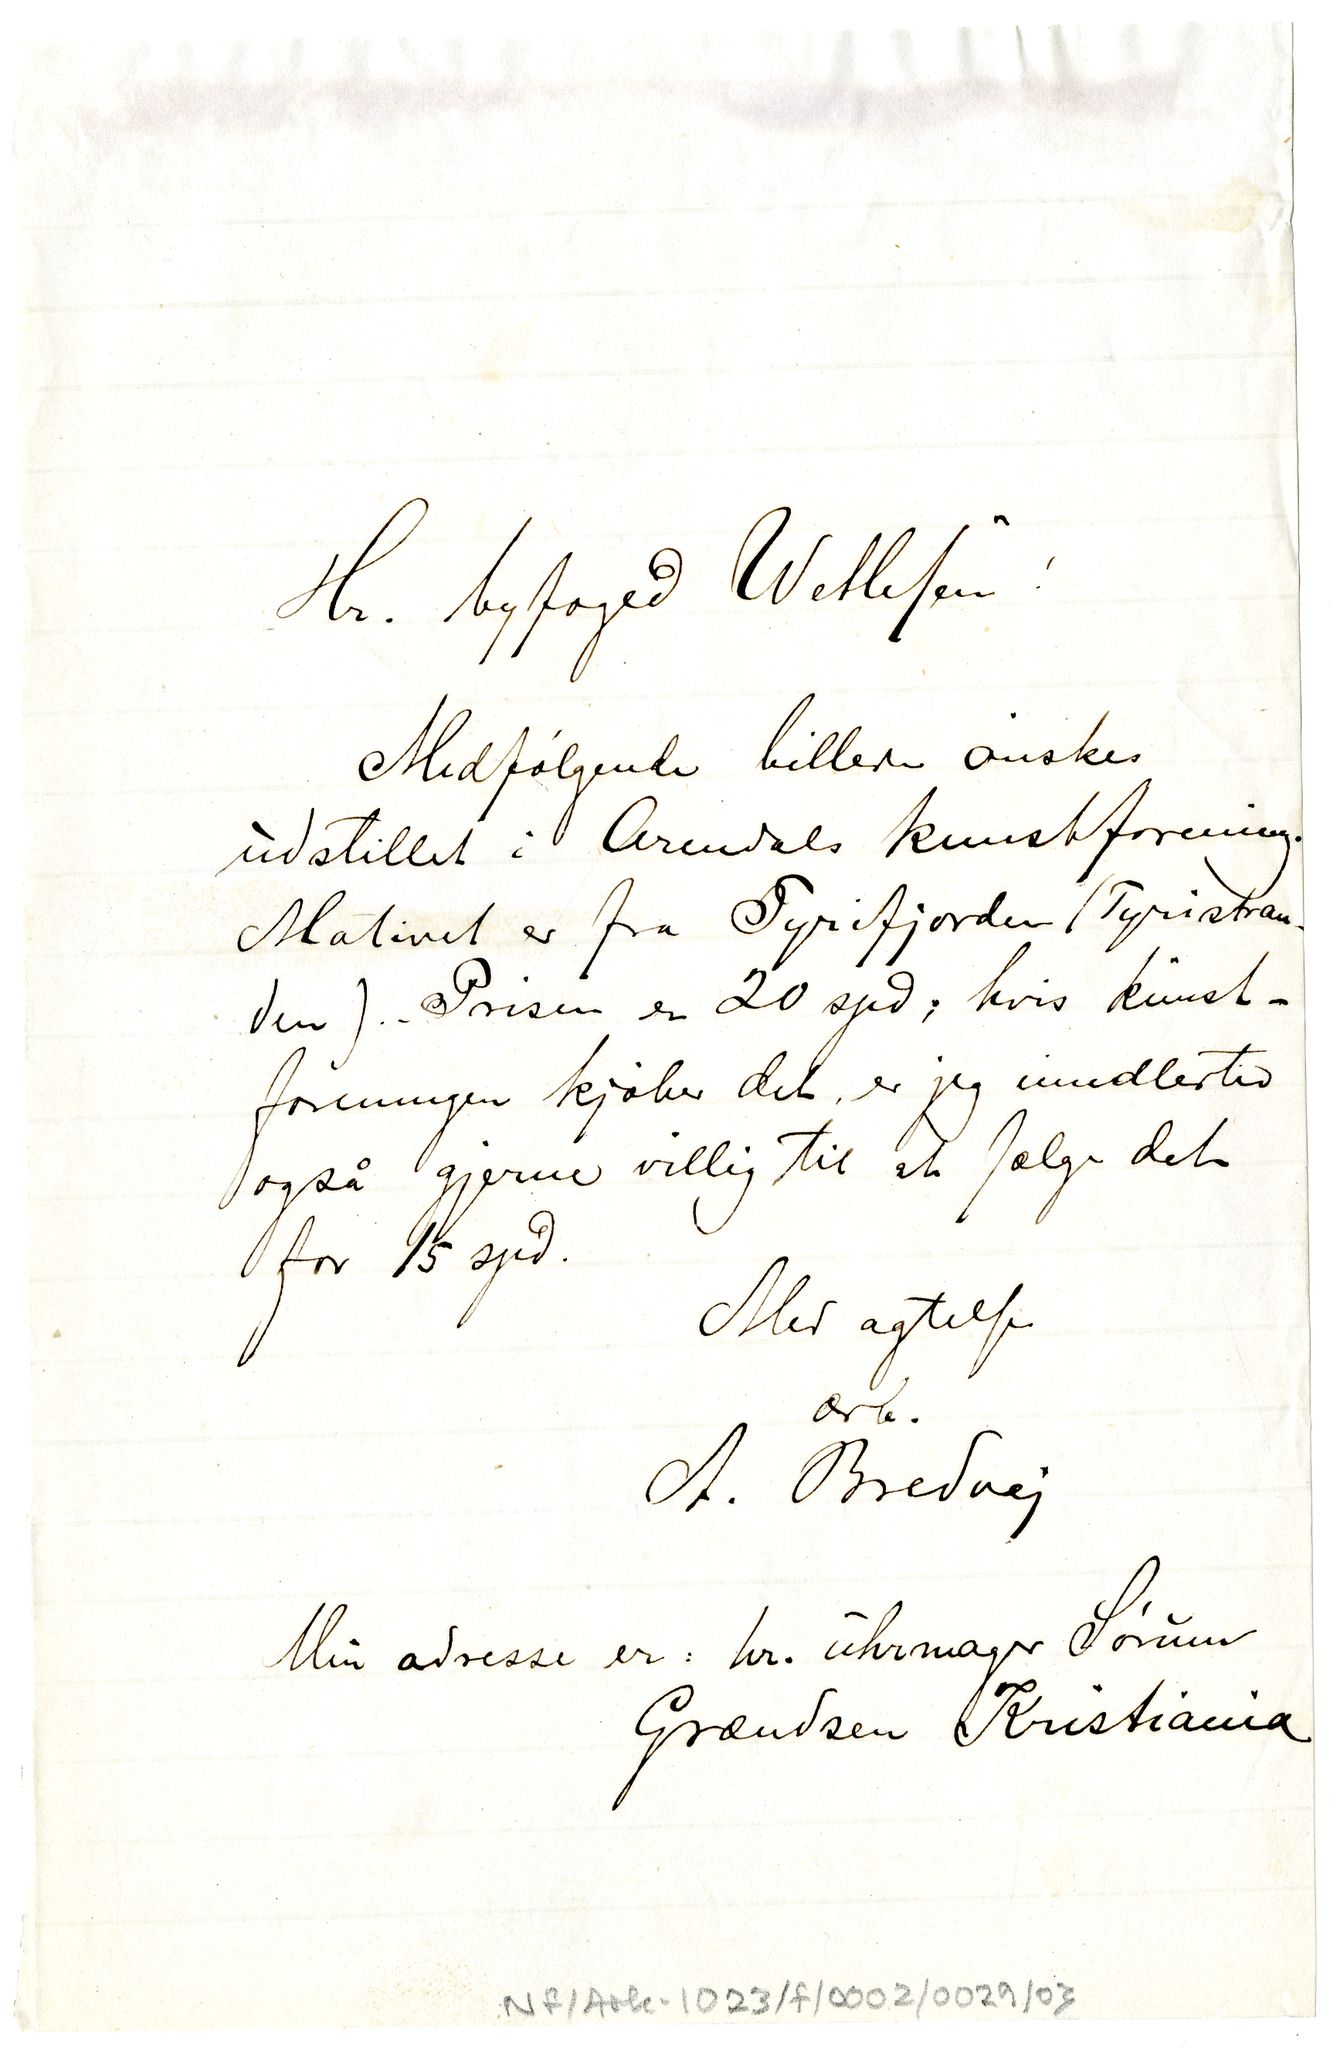 Hr. byfoged Wetlesen!
Medfølgende billede ønskes
udstillet i Arendals kunstforening.
Motivet er fra Tyrifjorden (Tyristran-
den). - Prisen er 20 spd; hvis kunst-
foreningen kjøber det, er jeg imidlertid
også gjerne villig til at sælge det
for 15 spd.
Med agtelse
ærb.
A. Bredvej
Min adresse er: hr. uhrmager Sørum
Grændsen Kristiania
NF/Ark-1023/f/0002/0029/03